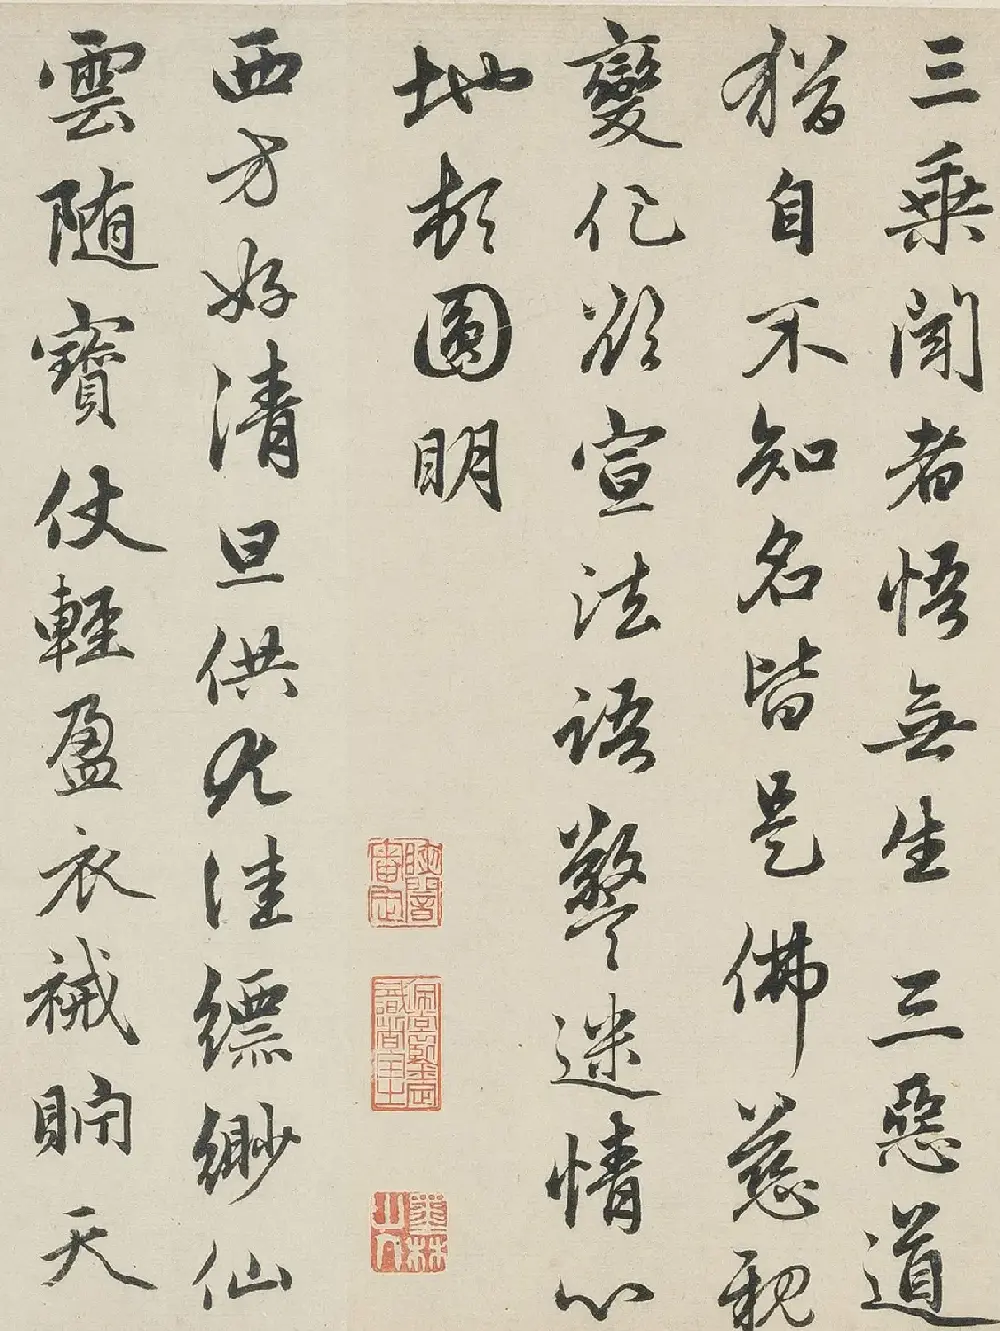 三乘聞者悟無生三惡道
猶自不知名皆是佛慈親
變化欲宣法語警迷情心
地頓圓明
西方好清旦供尤佳縹緲仙
雲隨寶仗輕盈衣裓貯天